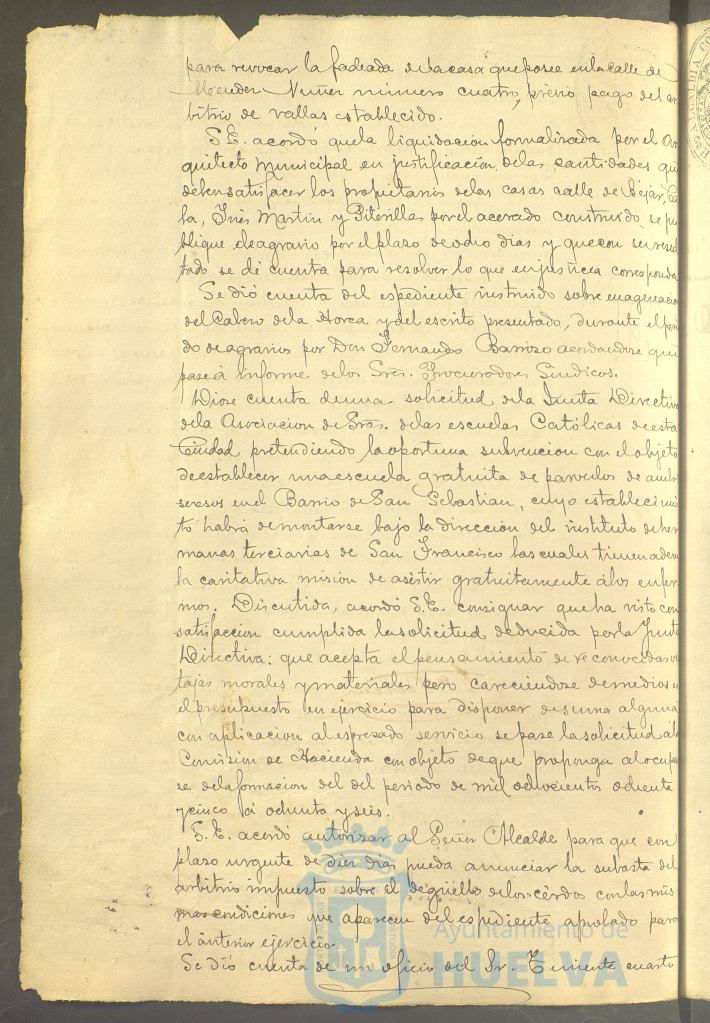 para revocar la fachada dela casa que posee en la calle de
Mendez Nuñez numero cuatro, previo pago del ar
bitrio de vallas establecido.
S.E. acordó que la liquidacion formalizada por el Ar
quitecto Municipal en justificacion delas cantidades que
deben satisfacer los propietarios delas casas calle de Béjar,
Ines Martin y Piterillas por el acerado construido se pu
blique el agravio por el plazo de ocho dias y que con su resul
tado se dé cuenta para resolver lo que en justicia corresponda
Se dió cuenta del espediente instruido sobre enagenacion
del Cabezo dela Horca y del escrito presentado, durante el perio
do de agravios por Don Fernando Barroso acordandose que
pase á informe delos Sres. Procuradores Sindicos.
Diose cuenta de una solicitud dela Junta Directiva
dela Asociacion de Sras. delas escuelas Católicas de esta
Ciudad pretendiendo la oportuna subvencion con el objeto
de establecer una escuela gratuita de parvulos de ambos
secsos en el Barrio de San Sebastian, cuyo establecimien
to habrá de montarse bajo la direccion del instituto de her
manas terciarias de San Francisco las cuales tienen adem
la caritativa mision de asistir gratuitamente álos enfer
mos. Discutida, acordó S.E. consignar que ha visto con
satisfaccion cumplida la solicitud deducida por la Junta
Directiva: que acepta el pensamiento de reconocidas ven
tajas morales y materiales pero careciendose de medios en
el presupuesto en ejercicio para disponer de suma alguna
con aplicacion al espresado servicio se pase la solicitud ála
Comision de Hacienda con objeto de que proponga al ocupar
se dela formacion del del periodo de mil ochocientos ochenta
y cinco á ochenta y seis.
S.E. acordó autorizar al Señor Alcalde para que con
plazo urgente de diez dias pueda anunciar la subasta del
arbitrio impuesto sobre el degüello delos cerdos con las mis
mas condiciones que aparecen del espediente aprobado para
el anterior ejercicio.
Se dió cuenta de un oficio del Sr. Teniente cuarto
Ayuntamiento de
HUELVA